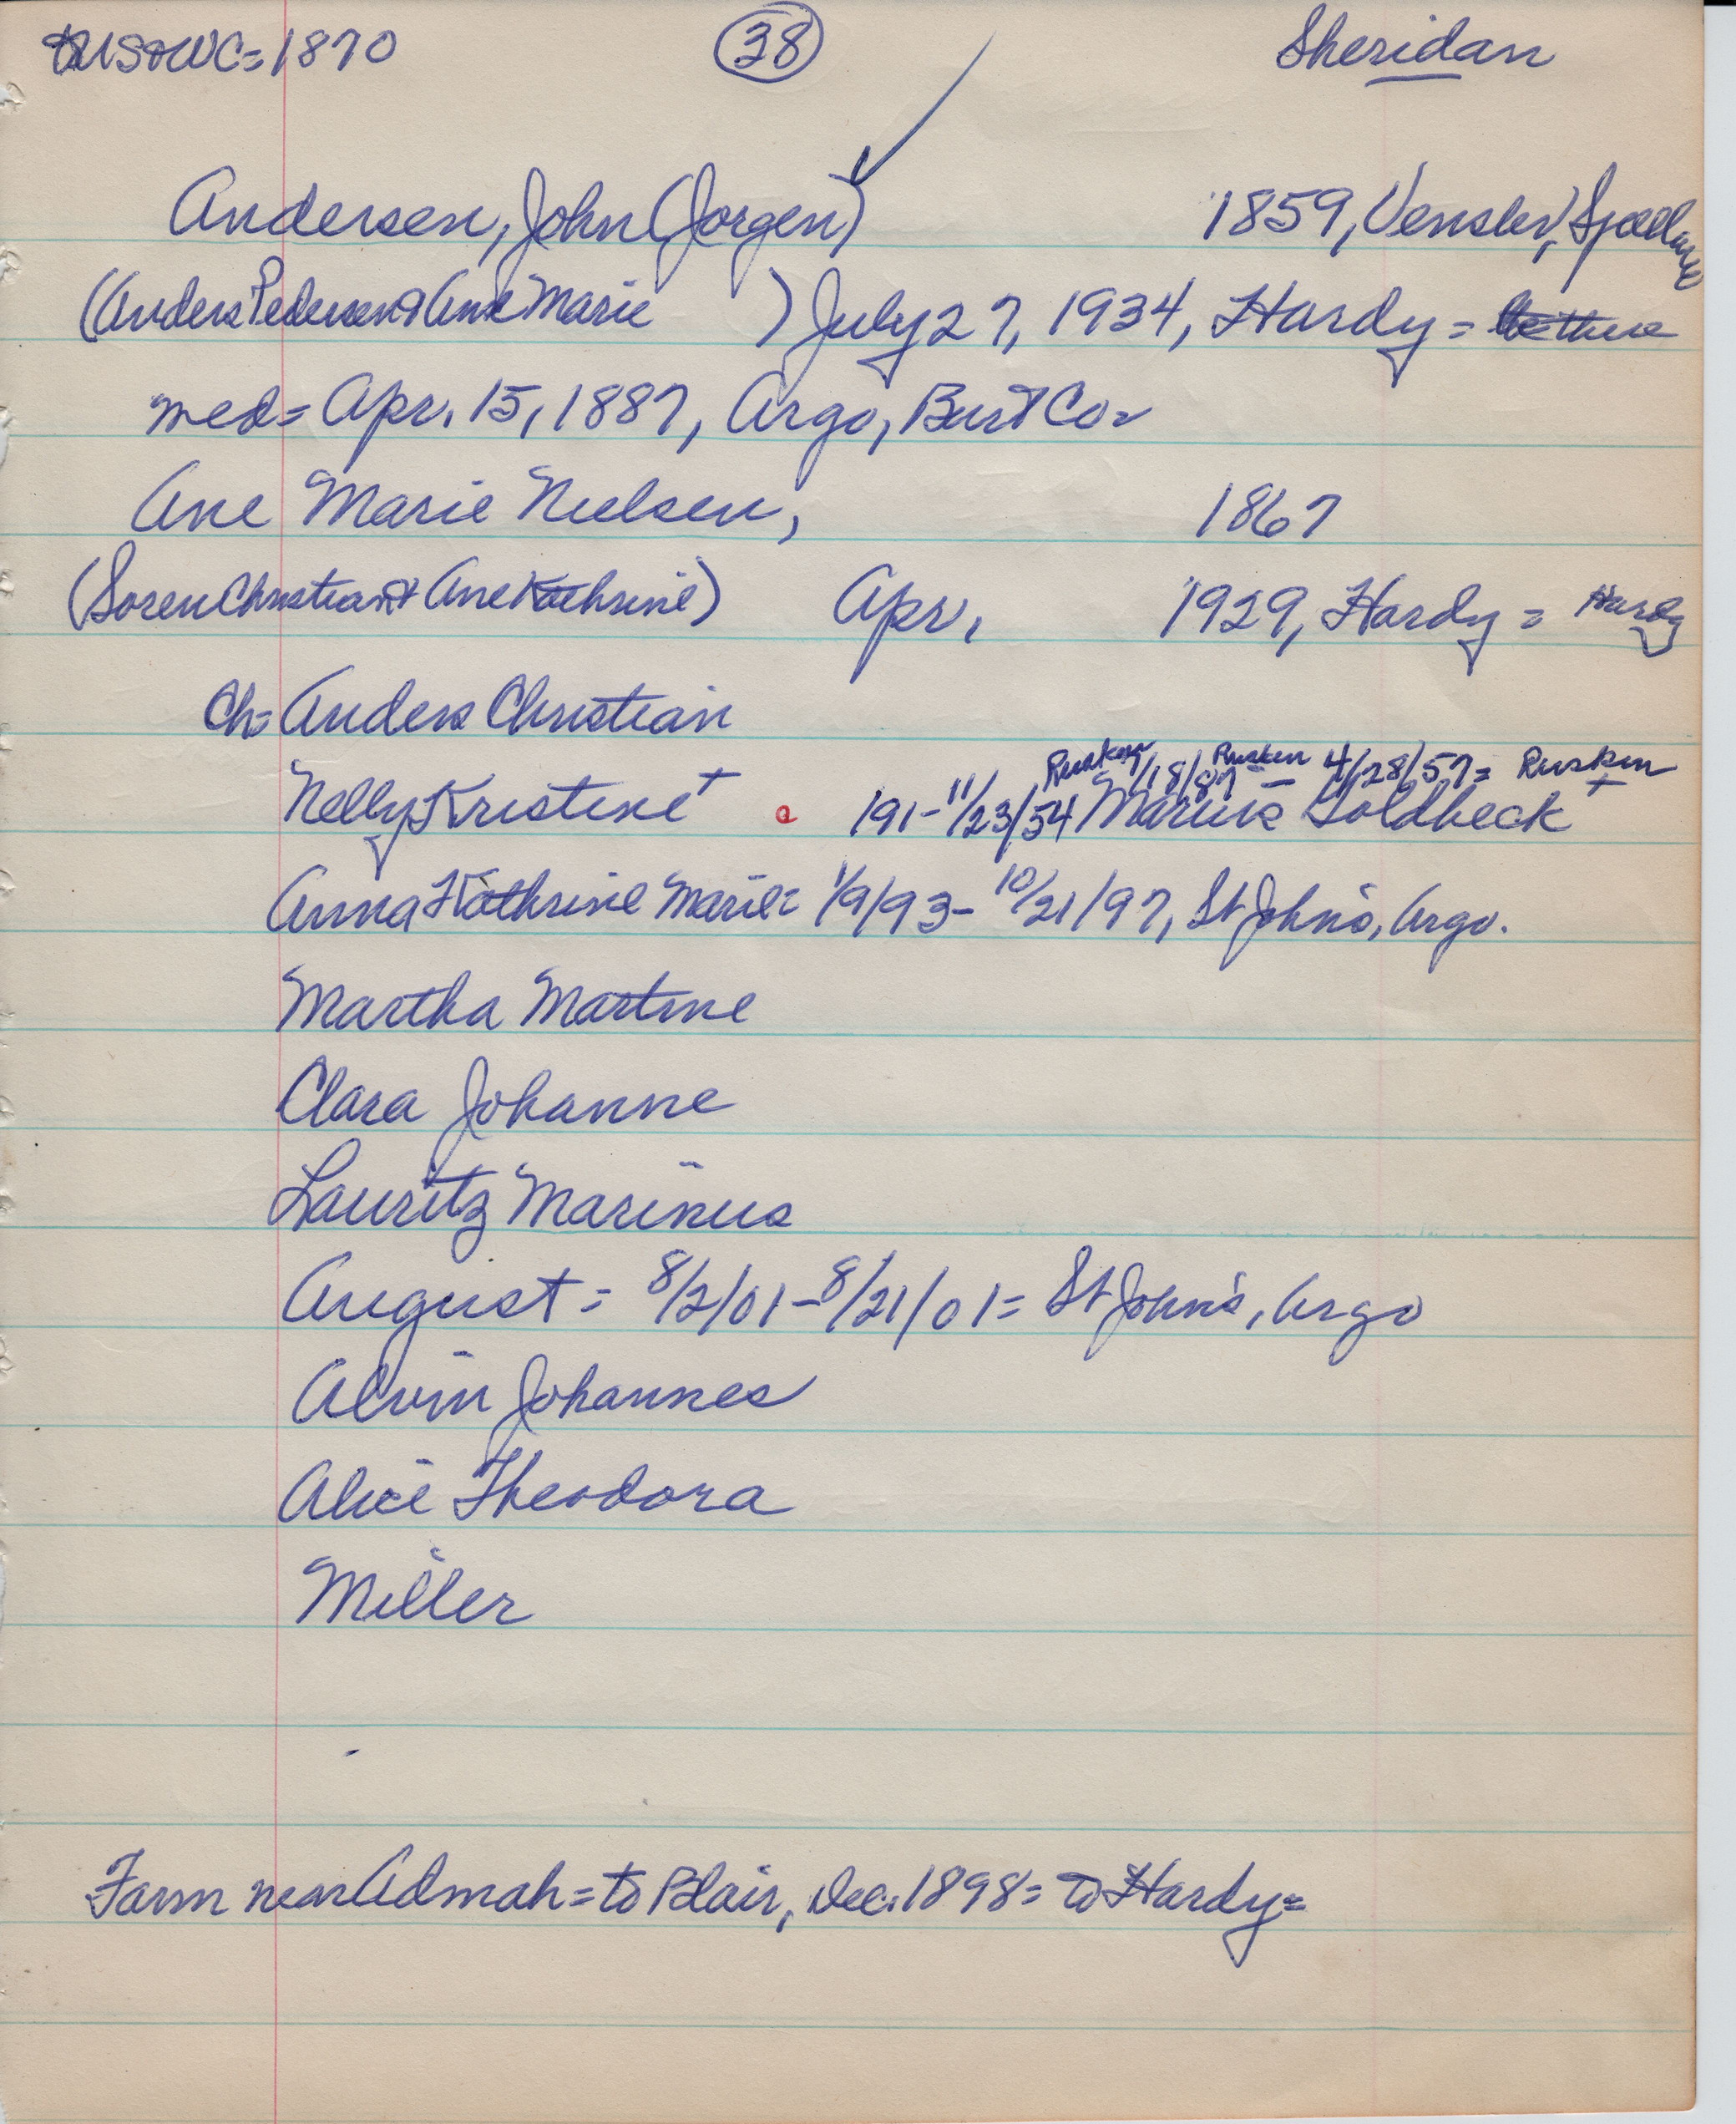 US&WC=1870 38 Sheridan
Andersen, John (Jorgen) 1859, Venslev, Sjaelland
(Anders Pedersen & Ane Marie ) July 27, 1934, Hardy =
med= Apr. 15, 1887, Argo, Burt Co=
Ane Marie Nielsen, 1867
(Soren Christian & Ane Kathrine) Apr, 1929, Hardy = Hardy
Ch= Anders Christian
Ruskin /18/87 Ruskin - 4/28/57= Ruskin
Nelly Kristine + 191-11/23/54 Marius Goldbeck +
Anna Kathrine Marie= 1/9/93- 10/21/97, St John's, Argo.
Martha Martine
Clara Johanne
Lauritz Marinus
August = 8/2/01-8/21/01= St John's, Argo
Alvin Johannes
Alice Theodora
Miller
Farm near Admah = to Blair, Dec. 1898= to Hardy=